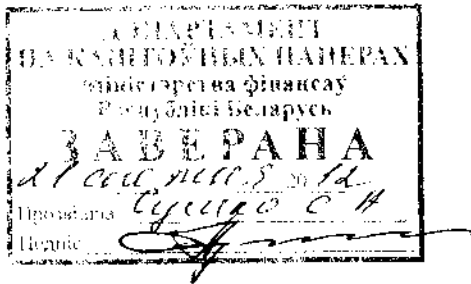 ДЭПАРТАМЕНТ
ПА КАШТОЎНЫХ ПАПЕРАХ
Міністэрства фінансаў
Рэспублікі Беларусь
ЗАВЕРАНА
21 20 12
Прозвішча Сушко С
Подпіс